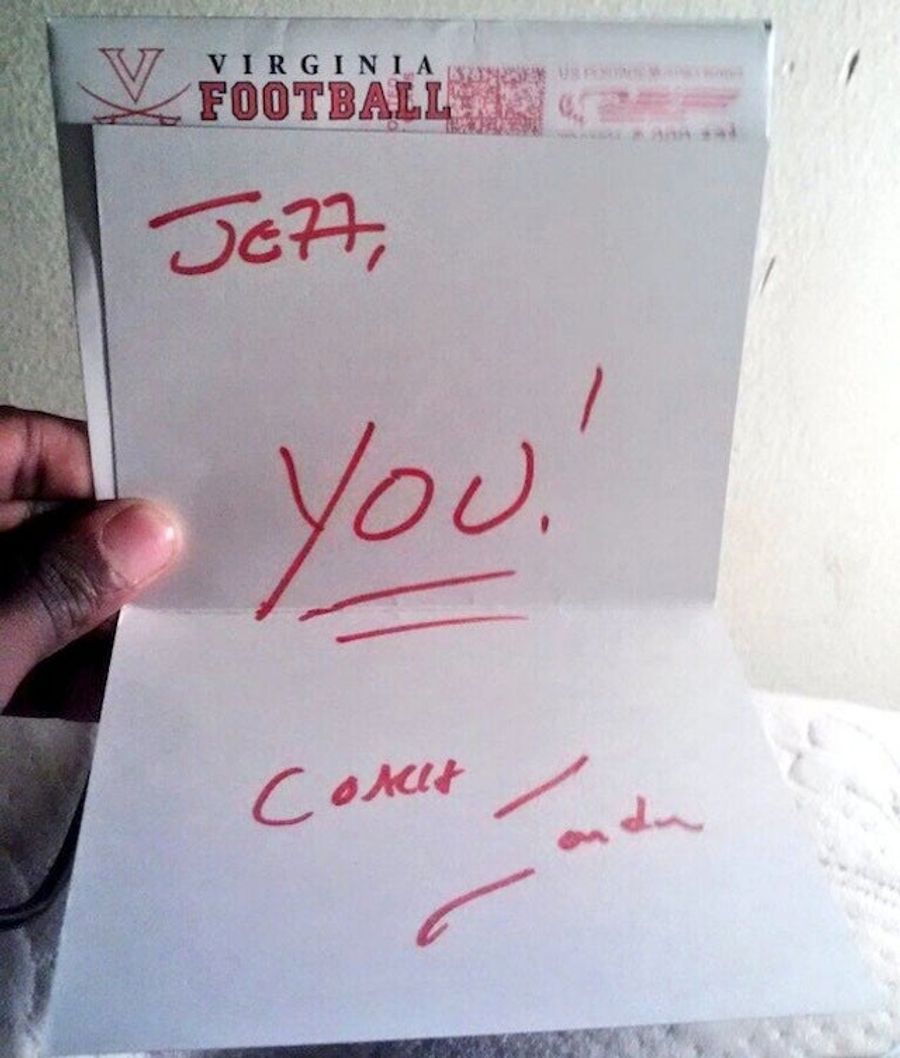 V
VIRGINIA
FOOTBALL
JEFF,
YOU!
COACH London